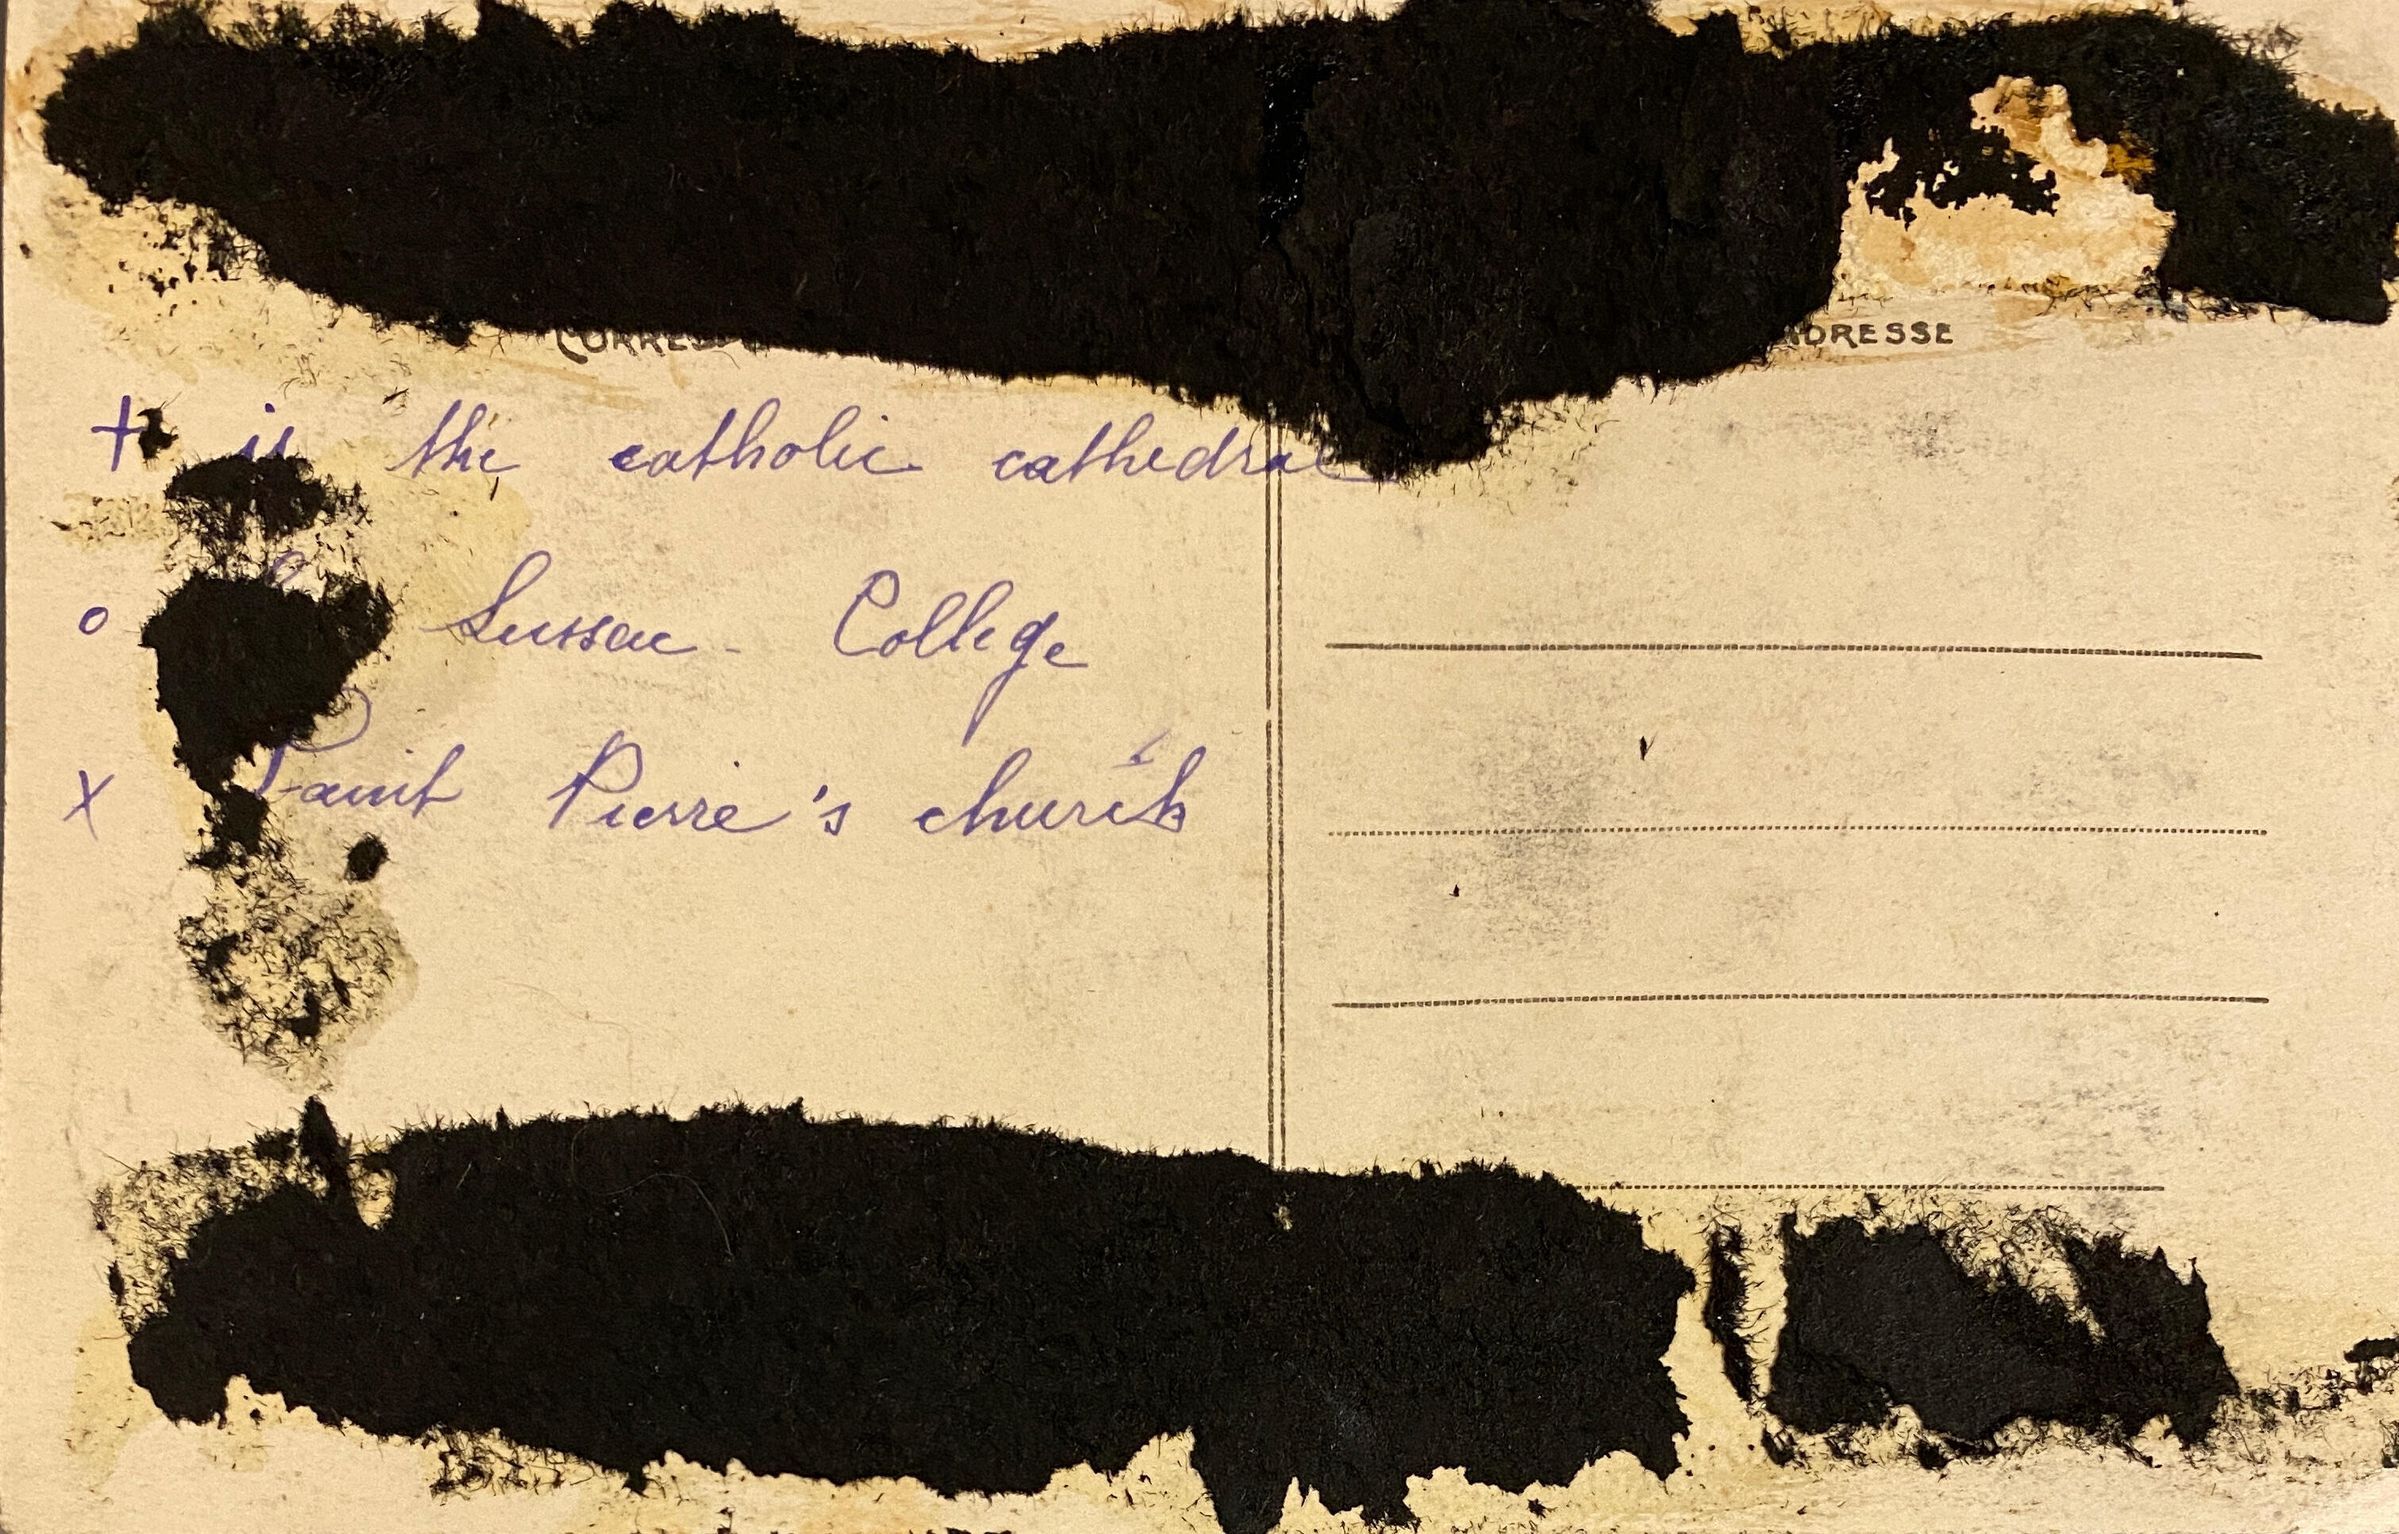 ADRESSE
+ is the catholic cathedral
o Lussac - College
x Saint Pierre's church